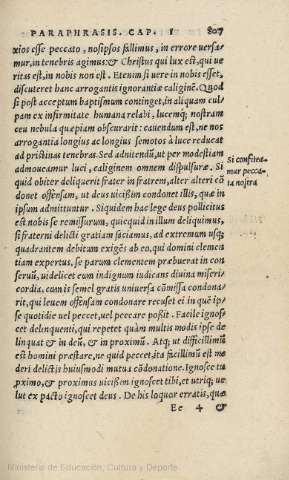 PARAPHRASIS. CAP. I 807
xios esse peccato, nosipsos fallimus, in errore versa/
mur, in tenebris agimus: & Christus qui lux est, qui ve
ritas est, in nobis non est. Etenim si vere in nobis esset,
discuteret hanc arrogantis ignorantiæ caliginē. Quod
si post acceptum baptismum continget, in aliquam cul/
pam ex infirmitate humana relabi, lucemq; nostram
ceu nebula quæpiam obscurarit: cavendum est, ne nos
arrogantia longius ac longius semotos à luce reducat
ad pristinas tenebras. Sed adnitendū, ut per modestiam
admoveamur luci, caliginem omnem dispulsuræ. Si
quid obiter deliquerit frater in fratrem, alter alteri cō
donet offensam, ut deus vicißim condonet illis, quæ in
ipsum admittuntur. Siquidem hac lege deus pollicitus
est nobis se remissorum, quicquid in illum deliquimus,
si fraterni delicti gratiam faciamus, ad extremum usq;
quadrantem debitum exigēs ab eo, qui domini clemen
tiam expertus, se parum clementem præbuerat in con
servū, videlicet eum indignum iudicans divina miseri/
cordia, cum is semel gratis universa cōmissa condona/
rit, qui levem offensam condonare recuset ei in quē ip/
se quotidie vel peccet, vel peccare poßit. Facile ignos/
cet delinquenti, qui repetet quàm multis modis ipse de
linquat & in deū, & in proximū. Atq; ut difficillimū
est homini præstare, ne quid peccet, ita facillimū est me
deri delictis huiusmodi mutua cōdonatione. Ignosce tu
pximo, & proximus vicißim ignoscet tibi, et utriq; ve
lut ex pacto ignoscet deus. De his loquor erratis, quæ
Ee 4 &
Si confitea-
mur pecca-
ta nostra
Ministerio de Educación, Cultura y Deporte